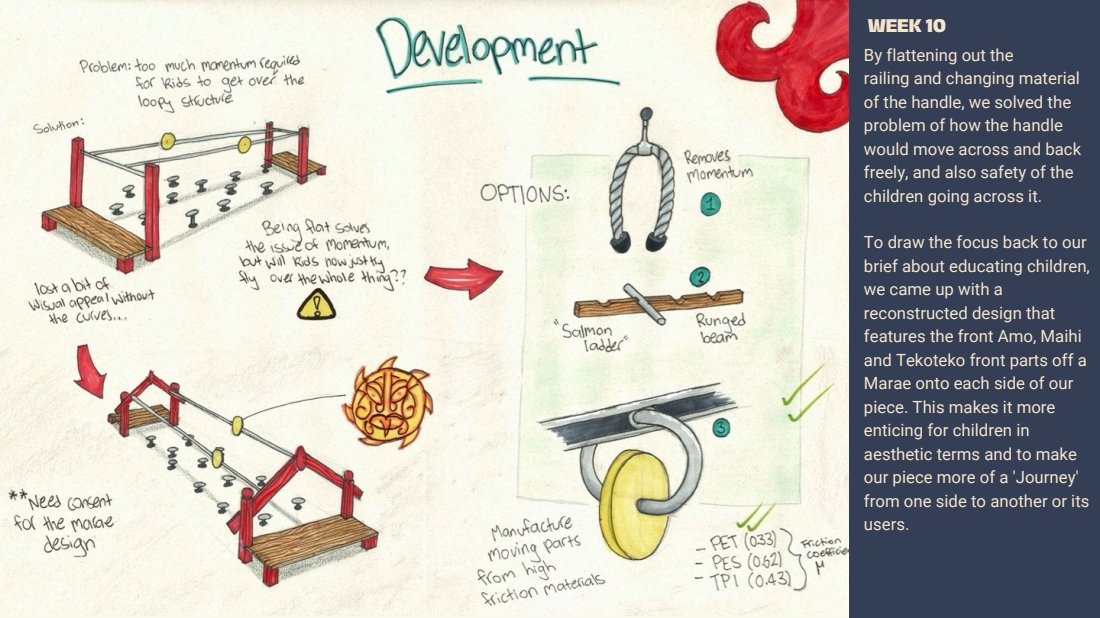 Development
Problem: too much momentum required
for kids to get over the
loopy structure
Solution:
Being flat solves
the issue of momentum,
but will kids now just
fly over the whole thing??
lost a bit of
visual appeal without
the curves...
**Need consent
for the marae
design
OPTIONS:
Removes
momentum
1
2
"Salmon
ladder"
Runged
beam
3
Manufacture
moving parts
from high
friction materials
- PET (0.33)
- PES (0.62)
- TPI (0.43)
Friction
coefficient
μ
WEEK 10
By flattening out the
railing and changing material
of the handle, we solved the
problem of how the handle
would move across and back
freely, and also safety of the
children going across it.
To draw the focus back to our
brief about educating children,
we came up with a
reconstructed design that
features the front Amo, Maihi
and Tekoteko front parts off a
Marae onto each side of our
piece. This makes it more
enticing for children in
aesthetic terms and to make
our piece more of a 'Journey'
from one side to another or its
users.